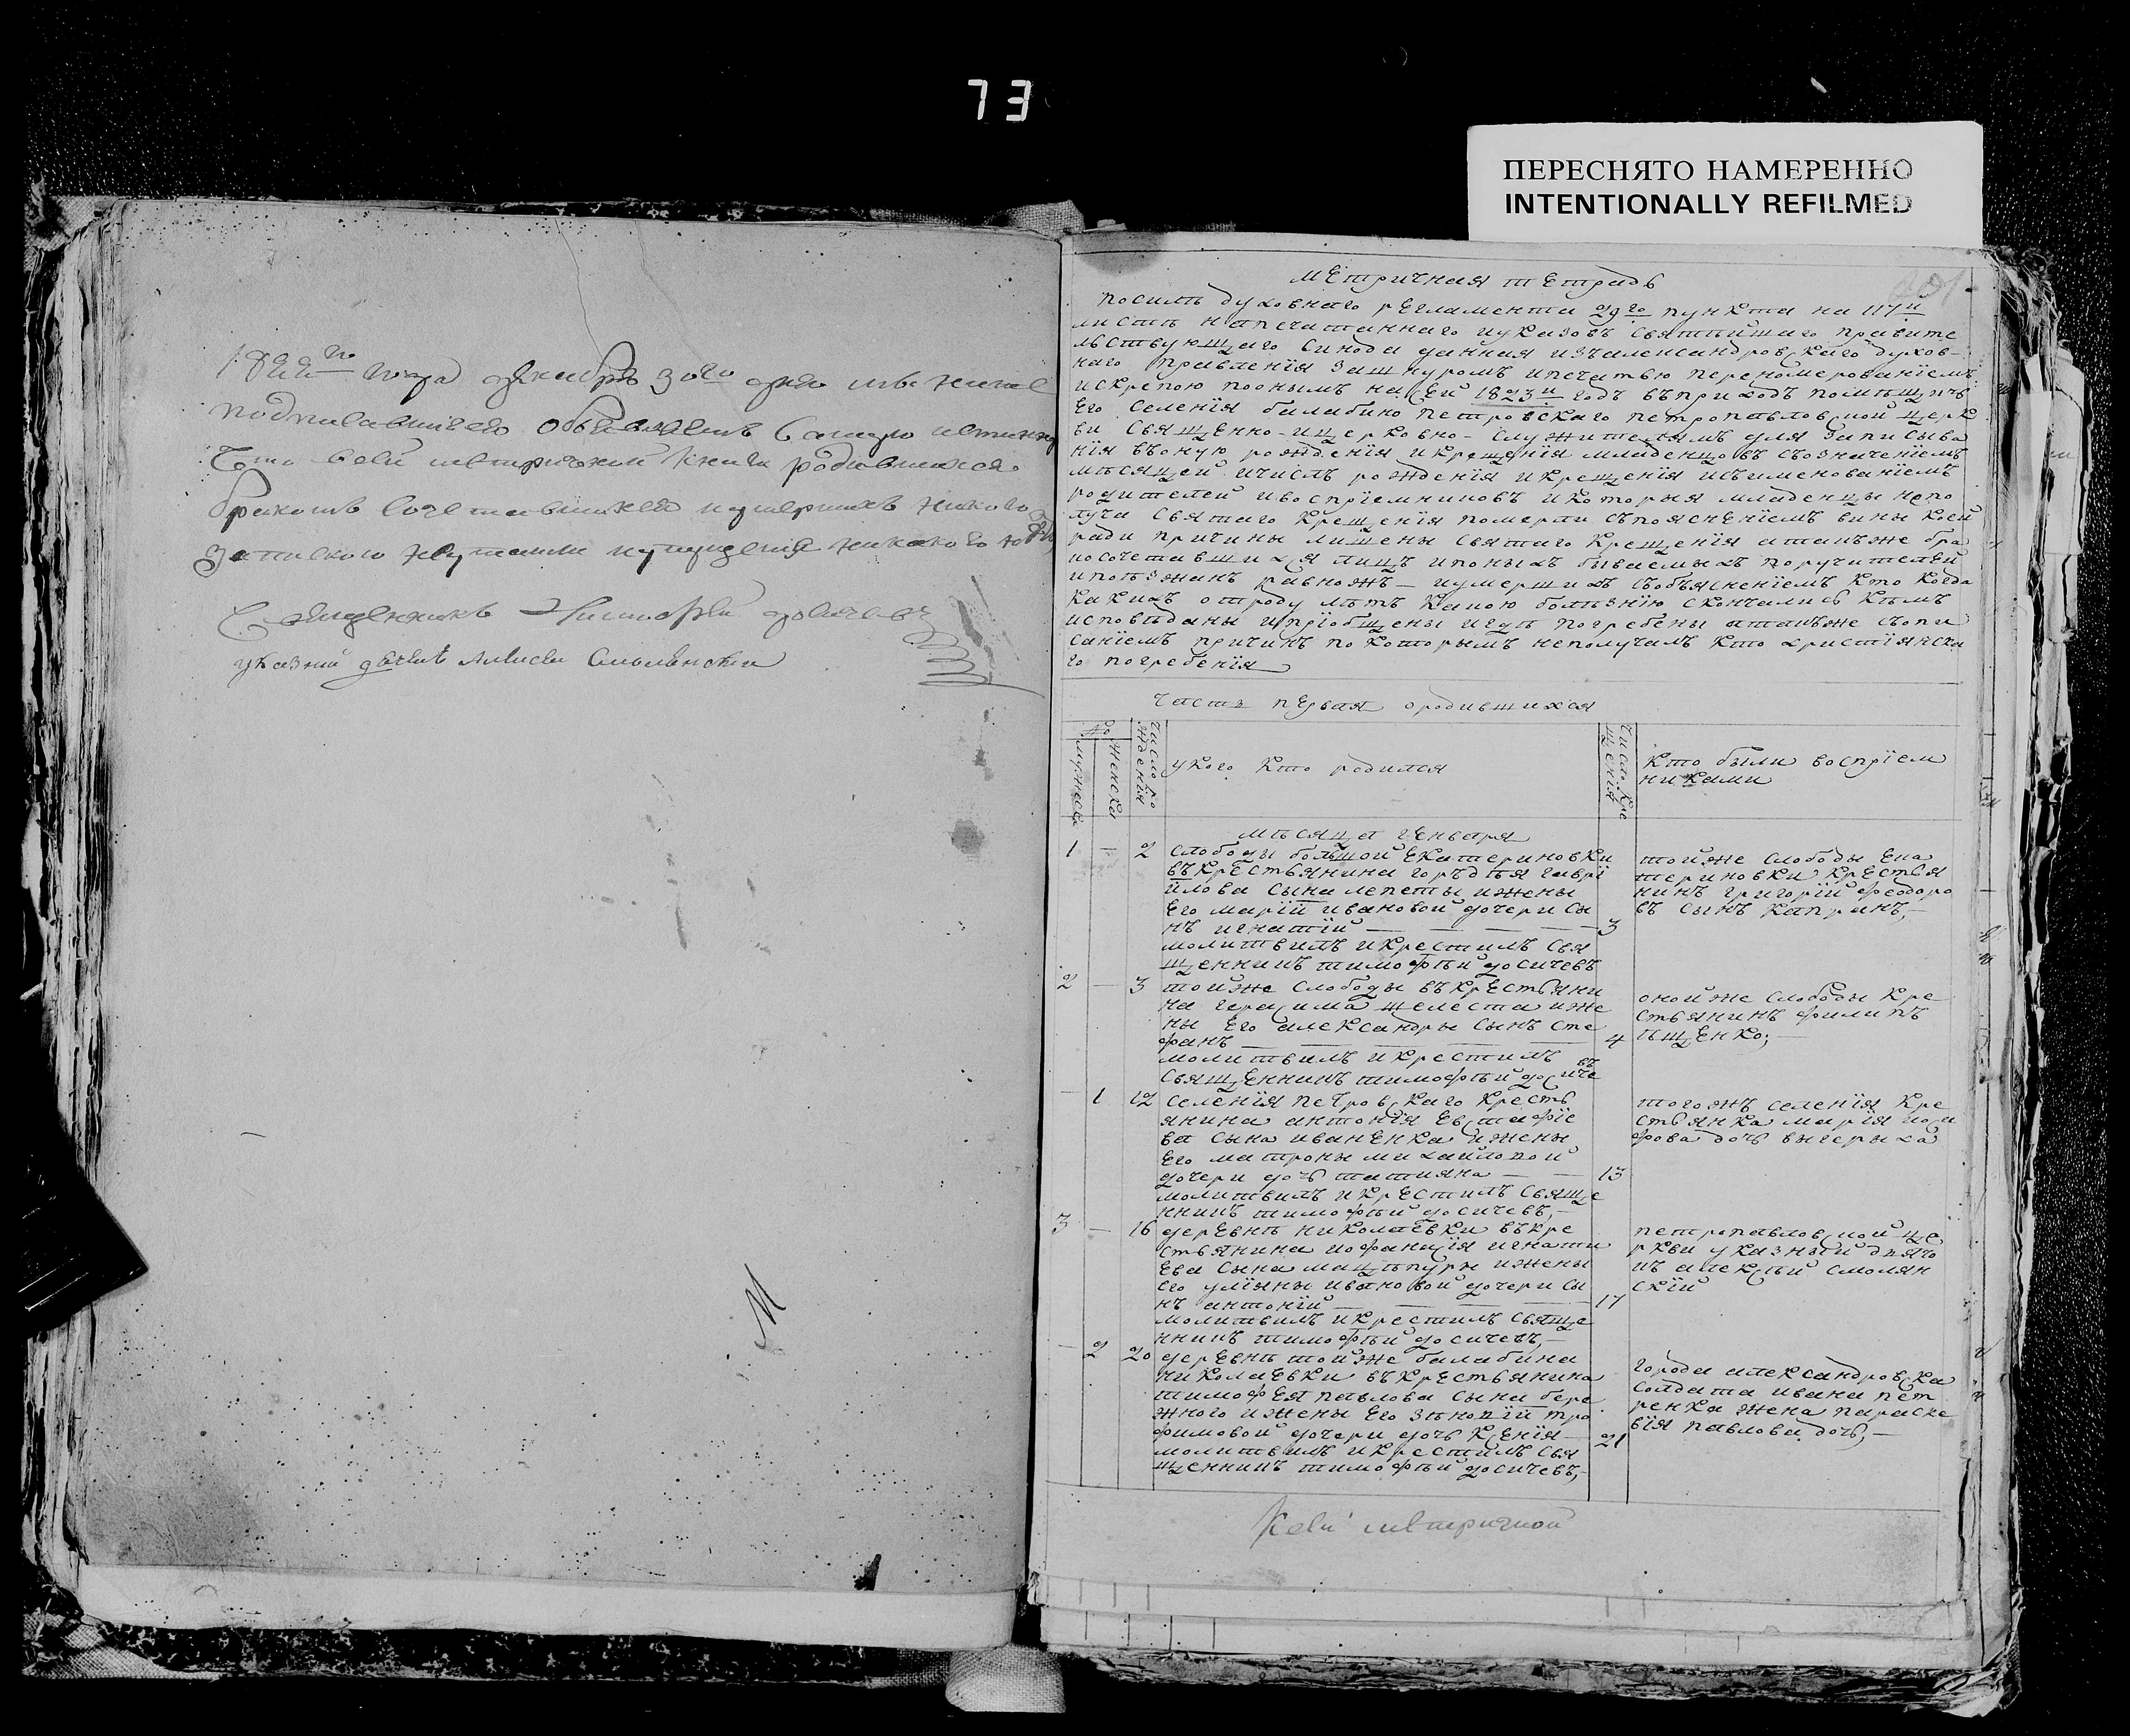 73
ПЕРЕСНЯТО НАМЕРЕННО
INTENTIONALLY REFILMED
1822го года декабря 30го дня мы ниже
подписавшиеся объявляемъ самую истинну
что въ сей метрической книги родившихся
бракомъ сочетавшихся и умершихъ никого
запискою не утаили и упущения никакого
Священникъ Тимофей Досичевъ
указний дячекъ Алексей Смолянский
201
Метричная тетрадь
по силѣ духовнаго регламента 29го пункта на 117й
листѣ напечатаннаго и указовъ святѣйшаго правите
льствующаго синода данная изъ александровскаго духов-
наго правленїя за шнуромъ и печатью переномерованїемъ
и скрепою поонымъ на сей 1823й годъ въ приходъ помѣщичь
его селенїя балабино петровскаго петропавловской церк
ви священно-и церковно-служителямъ для записыва
нїя въ оную рожденїя и крещенїя младенцовъ съ означенїемъ
мѣсяцей и числъ рожденїя и крещенїя и съ именованїемъ
родителей и воспрїемниковъ и которыя младенцы непо
луча святаго крещенїя померли съ поясненїемъ вины коей
ради причины лишены святаго крещенїя а такъ же бра
посочетавшихся лицъ и поныхъ бываемыхъ поручителей
и поѣзжанъ равножъ - и умершихъ съ объясненїемъ кто когда
какихъ отроду лѣтъ какою болѣзнїю скончались кѣмъ
исповѣданы и прїобщены и гдѣ погребены а такъже съ опи
санїемъ причинъ по которымъ неполучалъ кто христїянска
го погребенїя
Часть первая о родившихся
№
мужеска
женска
число ро
жденїя
у кого кто родился
число кре
щенїя
кто были воспрїем
никами
мѣсяца генваря
1 — 2 слободы большой Екатериновки
въ крестьянина горъдѣя гаврї
илова сына лепеты и жены
его марїи ивановой дочери сы
нъ игнатїй — 3
молитвилъ и крестилъ свя
щенникъ тимофѣй досичевъ
той же слободы ека
териновки крестья
нинъ григорїй феодоро
въ сынъ капранъ,—
2 — 3 той же слободы въ крестьяни
на герасима шелеста и же
ны его александры сынъ сте
фанъ — 4
молитвилъ и крестилъ
священникъ тимофѣй досиче въ
оной же слободы кре
стьянинъ филипъ
ѣщенко;—
— 1 12 селенїя петровскаго кресть
янина антонїя евстафїе
ва сына иваненка и жены
его матроны михайловой
дочери дочь татияна — 13
молитвилъ и крестилъ свяще
нникъ тимофѣй досичевъ,—
тогожъ селенїя кре
стьянка марїя иоси
фова дочь вычерыха
3 — 16 деревнѣ николаевки въ кре
стьянина иофанасїя игнати
ева сына мацѣпуры и жены
его улїяны ивановой дочери сы
нъ антонїй — 17
молитвилъ и крестилъ свяще
нникъ тимофѣй досичевъ,—
петропавловской це
ркви указный дьячо
къ алексѣй смолян
скїй
— 2 20 деревнѣ той же балабина
николаевки въ крестьянина
тимофея павлова сына бере
жного и жены его зѣновїи тро
фимовой дочери дочь ксенїя — 21
молитвилъ и крестилъ свя
щенникъ тимофѣй досичевъ,—
города александровска
солдата ивана пет
ренка жена параске
вїя павлова дочь,—
К сей метричной